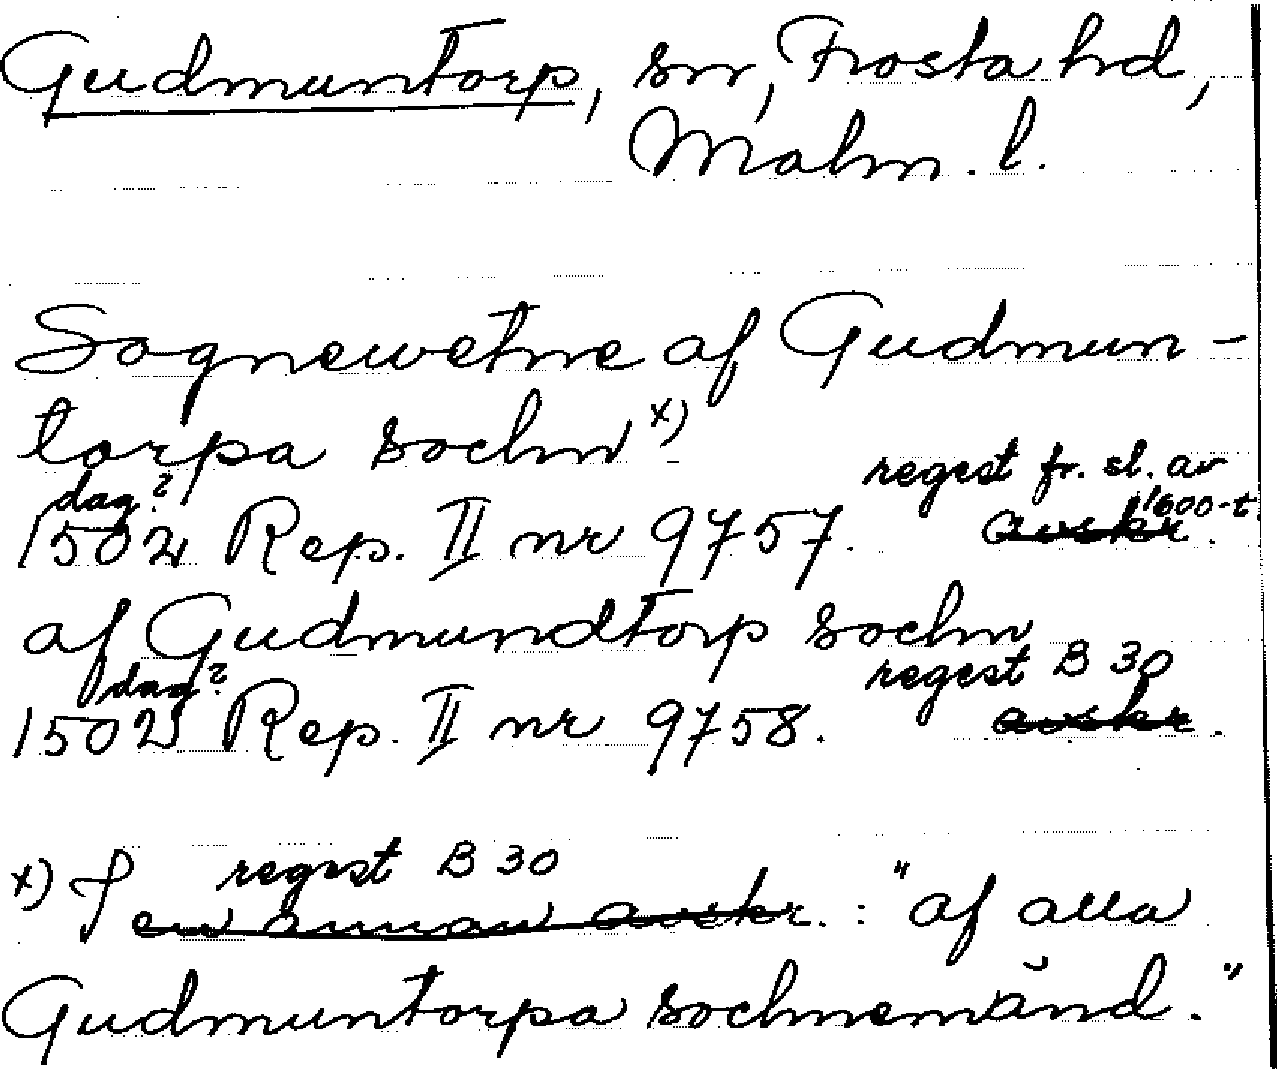 Gudmuntorp, sn, Frosta hd,
Malm. l.
Sognewetne af Gudmun-
torpa sochn x)
dag? regest fr. sl. av 1600-t
1502 Rep. II nr 9757. avskr.
af Gudmundtorp sochn
dag? regest B 30
1502 Rep. II nr 9758. avskr.
regest B 30
x) I en annan avskr. : "af alla
Gudmuntorpa sochnemänd."